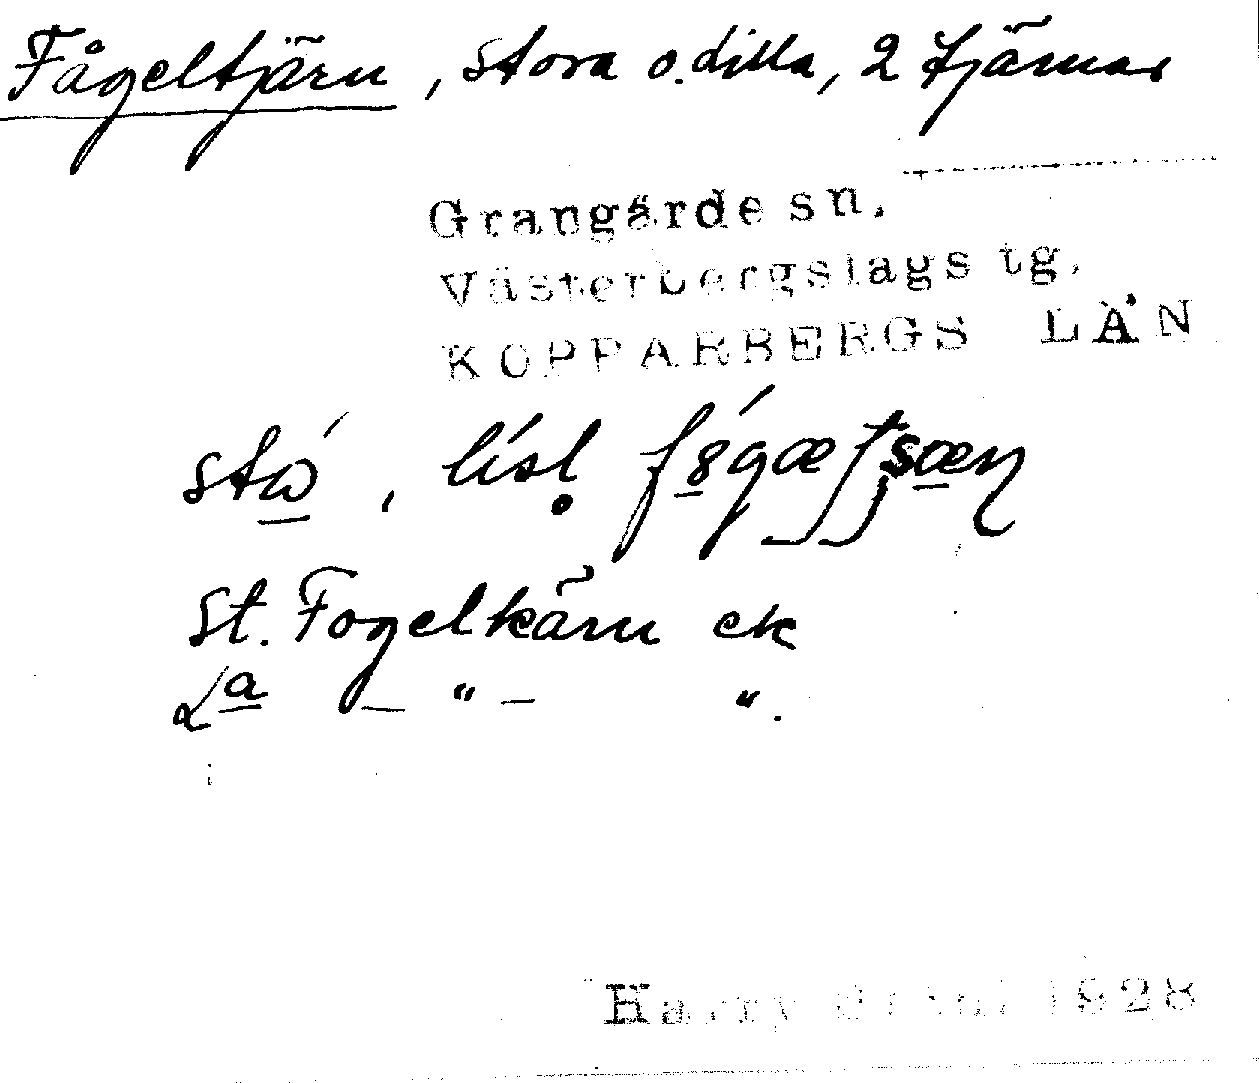 Fågeltjärn, Stora o. Lilla, 2 tjärnar
Grangärde sn.
Västerbergslags tg.
KOPPARBERGS LÄN
, lísl̥
St. Fogelkärn ek
La – " – ".
Harry 1928